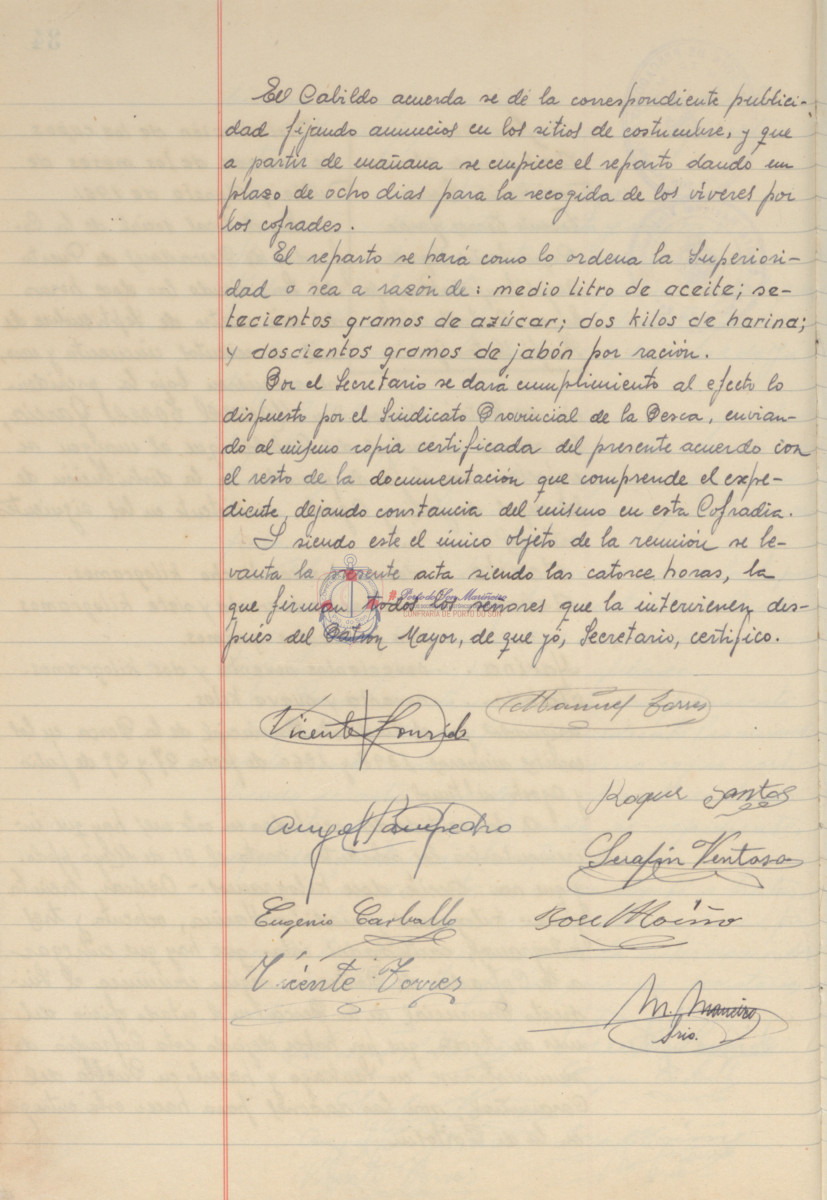 El Cabildo acuerda se dé la correspondiente publici-
dad fijando anuncios en los sitios de costumbre, y que
a partir de mañana se empiece el reparto dando un
plazo de ocho dias para la recogida de los víveres por
los cofrades.
El reparto se hará como lo ordena la Superiosi-
dad o sea a razón de: medio litro de aceite; se-
tecientos gramos de azúcar; dos kilos de harina;
y doscientos gramos de jabón por ración.
Por el Secretario se dará cumplimiento al efecto lo
dispuesto por el Sindicato Provincial de la Pesca, envian-
do al mismo copia certificada del presente acuerdo con
el resto de la documentación que comprende el expe-
diente, dejando constancia del mismo en esta Cofradía.
Y siendo este el único objeto de la reunión se le-
vanta la presente acta siendo las catorce horas, la
que firman todos los señores que la intervienen des-
pués del Patron Mayor, de que yó, Secretario, certifico.
Porto do Son Mariñeiro
CONFRARÍA DE PORTO DO SON
Manuel Torres
Vicente
Roque Santos
Angel Sampedro
Serafin Ventoso
Eugenio Carballo
José Moiño
Vicente Torres
M. Maneiro
Srio.